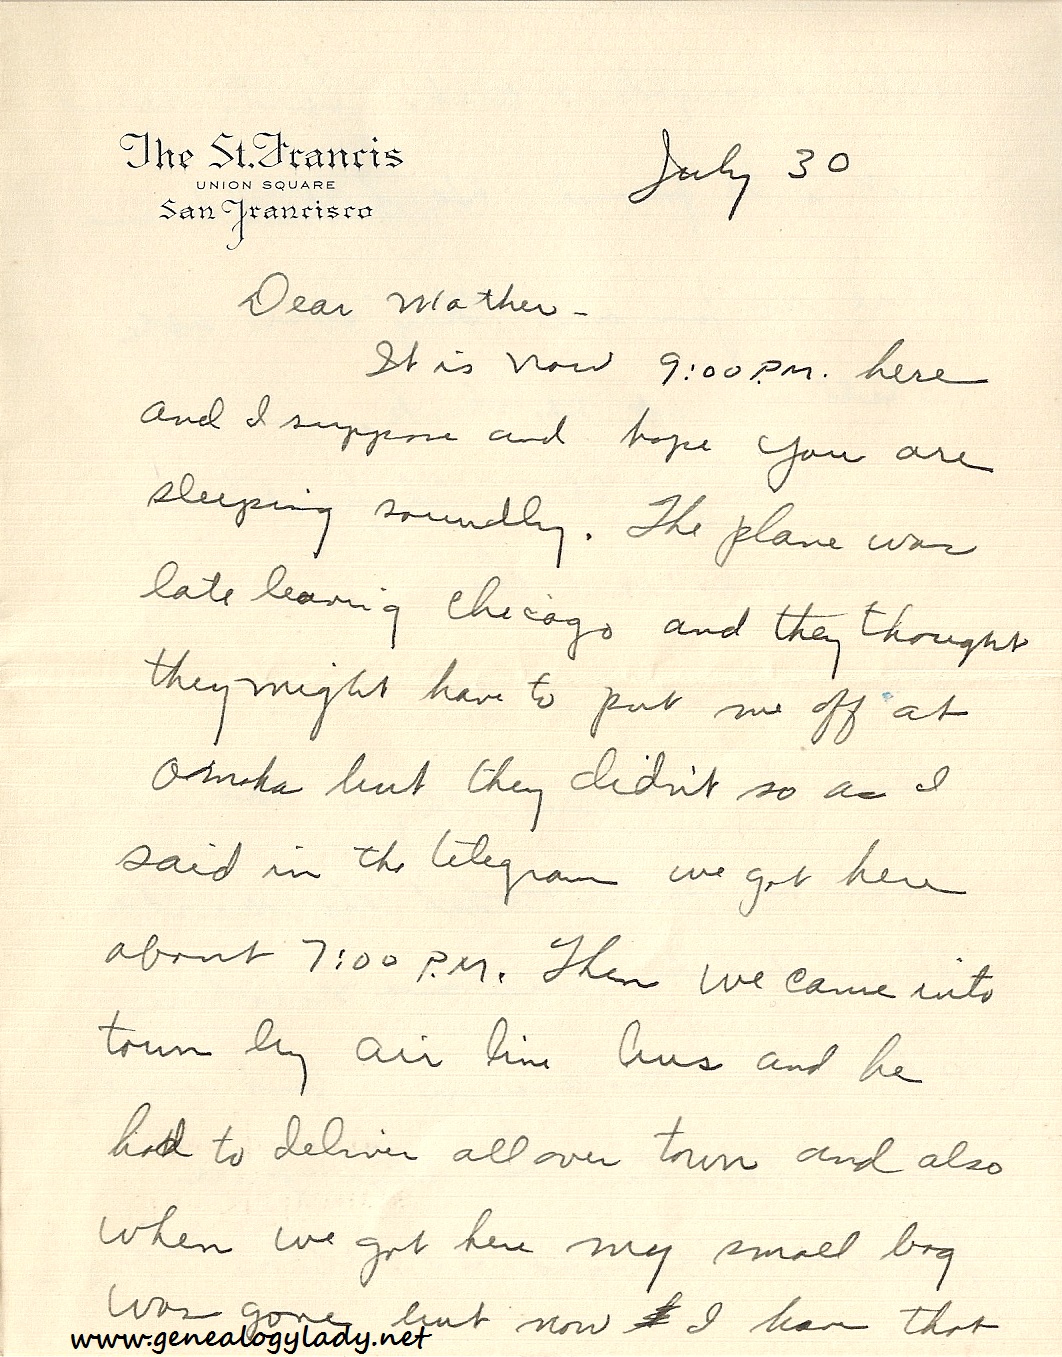 The St. Francis
UNION SQUARE
San Francisco
July 30
Dear Mother -
It is now 9:00 P.M. here
and I suppose and hope you are
sleeping soundly. The plane was
late leaving Chicago and they thought
they might have to put me off at
Omaha but they didn't so as I
said in the telegram we got here
about 7:00 P.M. Then we came into
town by air line bus and he
had to deliver all over town and also
when we got here my small bag
was gone but now I have that
www.genealogylady.net